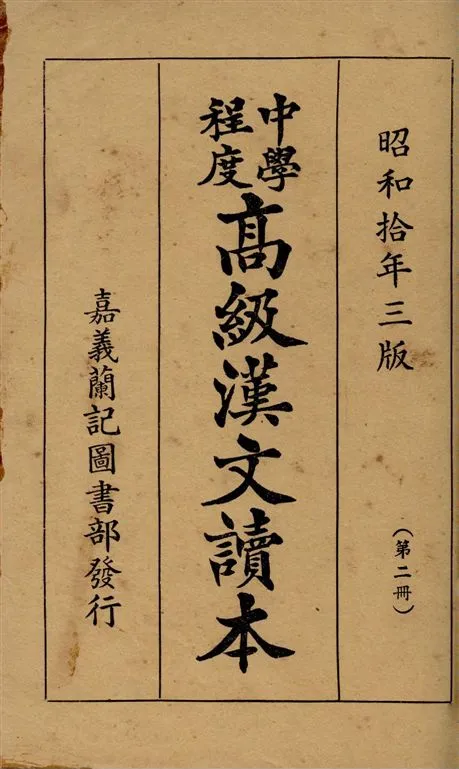 昭和拾年三版
(第二冊)
中學程度
高級漢文讀本
嘉義蘭記圖書部發行